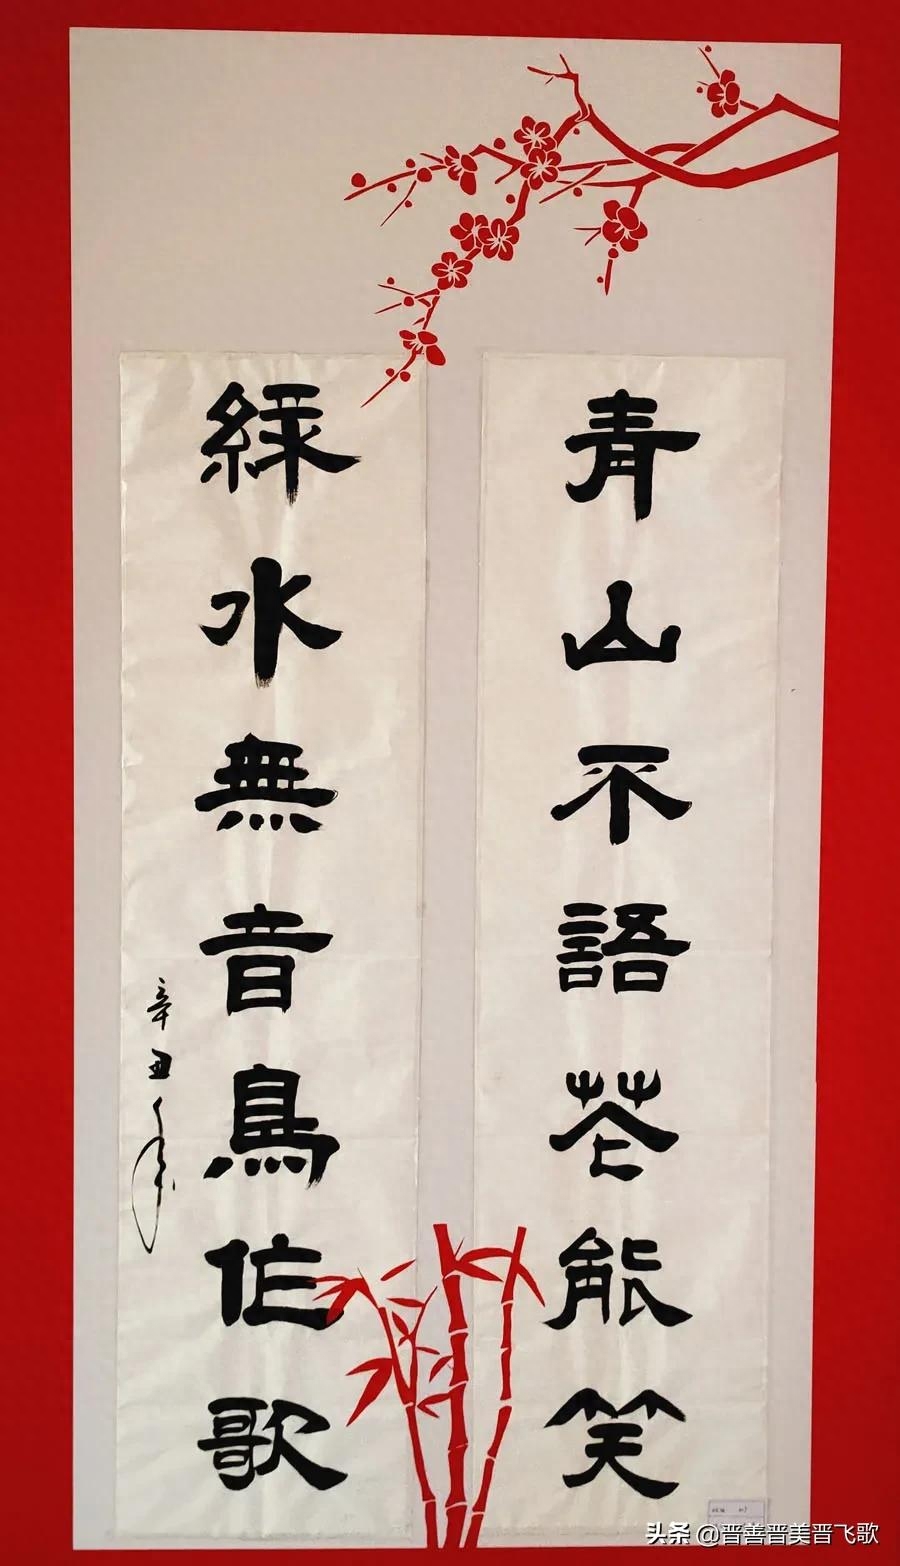 青山不語花能笑
緑水無音鳥作歌
辛丑年
头条 @晋善晋美晋飞歌